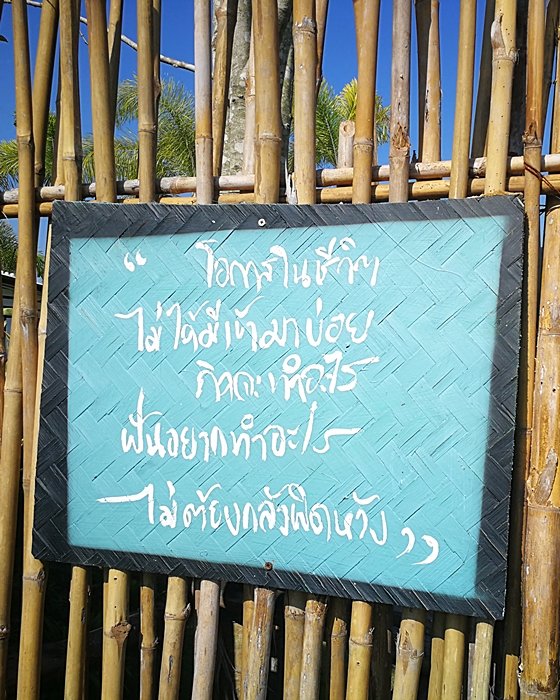 “ โอกาสในชีวิต
ไม่ได้มีเข้ามาบ่อย
คิดจะทำอะไร
ฝันอยากทำอะไร
ไม่ต้องกลัวผิดหวัง ”